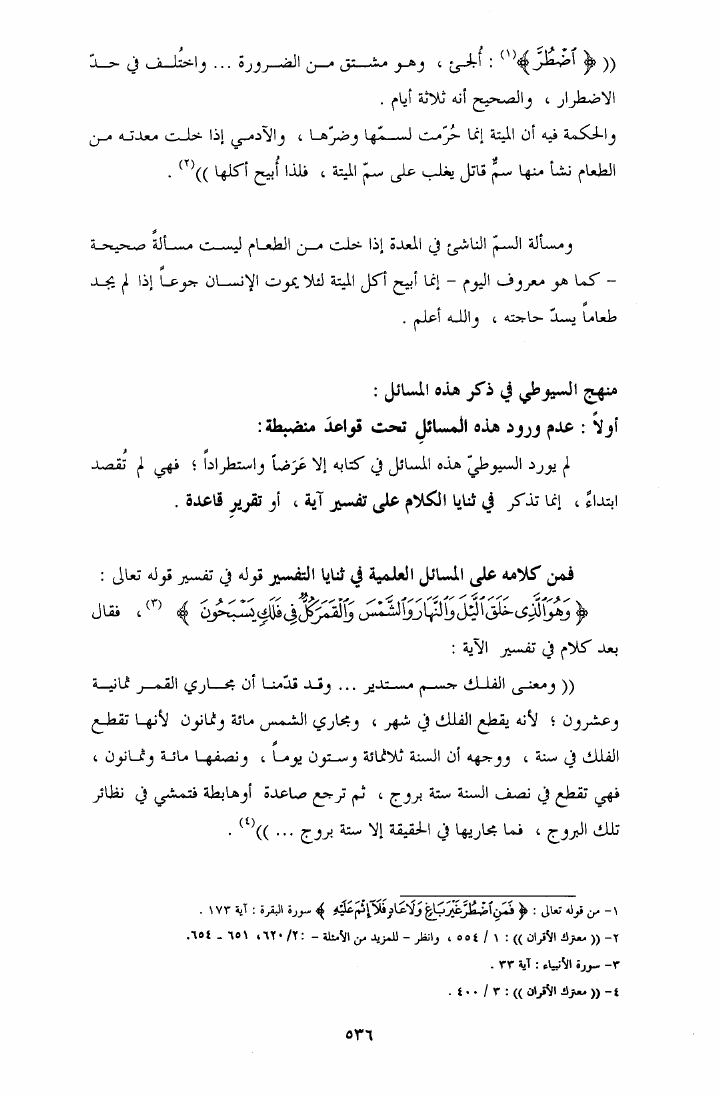 (( ﴿ ٱضْطُرَّ ﴾(١) : أُلجئ ، وهـو مشـتق مـن الضـرورة ... واختُلـف في حـدّ
الاضطرار ، والصحيح أنه ثلاثة أيام .
والحكمة فيه أن الميتة إنما حُرّمت لسـمّها وضرّهـا ، والآدمـي إذا خلـت معدتـه مـن
الطعام نشأ منها سمٌّ قاتل يغلب على سمّ الميتة ، فلذا أُبيح أكلها ))(٢) .
ومسألة السمّ الناشئ في المعدة إذا خلت مـن الطعـام ليسـت مسـألةً صحيحـة
- كما هو معروف اليوم - إنما أبيح أكل الميتة لئلا يموت الإنسـان جوعـاً إذا لم يجـد
طعاماً يسدّ حاجته ، واللـه أعلم .
منهج السيوطي في ذكر هذه المسائل :
أولاً : عدم ورود هذه المسائلِ تحت قواعدَ منضبطة :
لم يورد السيوطيّ هذه المسائل في كتابه إلا عَرَضاً واستطراداً ؛ فهي لم تُقصد
ابتداءً ، إنما تذكر في ثنايا الكلام على تفسير آية ، أو تقريرِ قاعدة .
فمن كلامه على المسائل العلمية في ثنايا التفسير قوله في تفسير قوله تعالى :
﴿ وَهُوَ ٱلَّذِى خَلَقَ ٱلَّيْلَ وَٱلنَّهَارَ وَٱلشَّمْسَ وَٱلْقَمَرَ كُلٌّ فِى فَلَكٍ يَسْبَحُونَ ﴾ (٣) ، فقال
بعد كلام في تفسير الآية :
(( ومعنـى الفلـك جسـم مسـتدير ... وقـد قدّمنـا أن مجـاري القمـر ثمانيـة
وعشرون ؛ لأنه يقطع الفلك في شهر ، ومجاري الشمس مائة وثمانون لأنهـا تقطـع
الفلك في سنة ، ووجهه أن السنة ثلاثمائة وسـتون يومـاً ، ونصفهـا مائـة وثمـانون ،
فهي تقطع في نصف السنة ستة بروج ، ثم ترجع صاعدة أوهابطة فتمشي في نظائر
تلك البروج ، فما مجاريها في الحقيقة إلا ستة بروج ... ))(٤) .
١- من قوله تعالى : ﴿ فَمَنِ ٱضْطُرَّ غَيْرَ بَاغٍ وَلَا عَادٍ فَلَآ إِثْمَ عَلَيْهِ ﴾ سورة البقرة : آية ١٧٣ .
٢- (( معترك الأقران )) : ١ / ٥٥٤ ، وانظر - للمزيد من الأمثلة - : ٢ /٦٢٠، ٦٥١ - ٦٥٤.
٣- سورة الأنبياء : آية ٣٣ .
٤- (( معترك الأقران )) : ٣ / ٤٠٠ .
٥٣٦